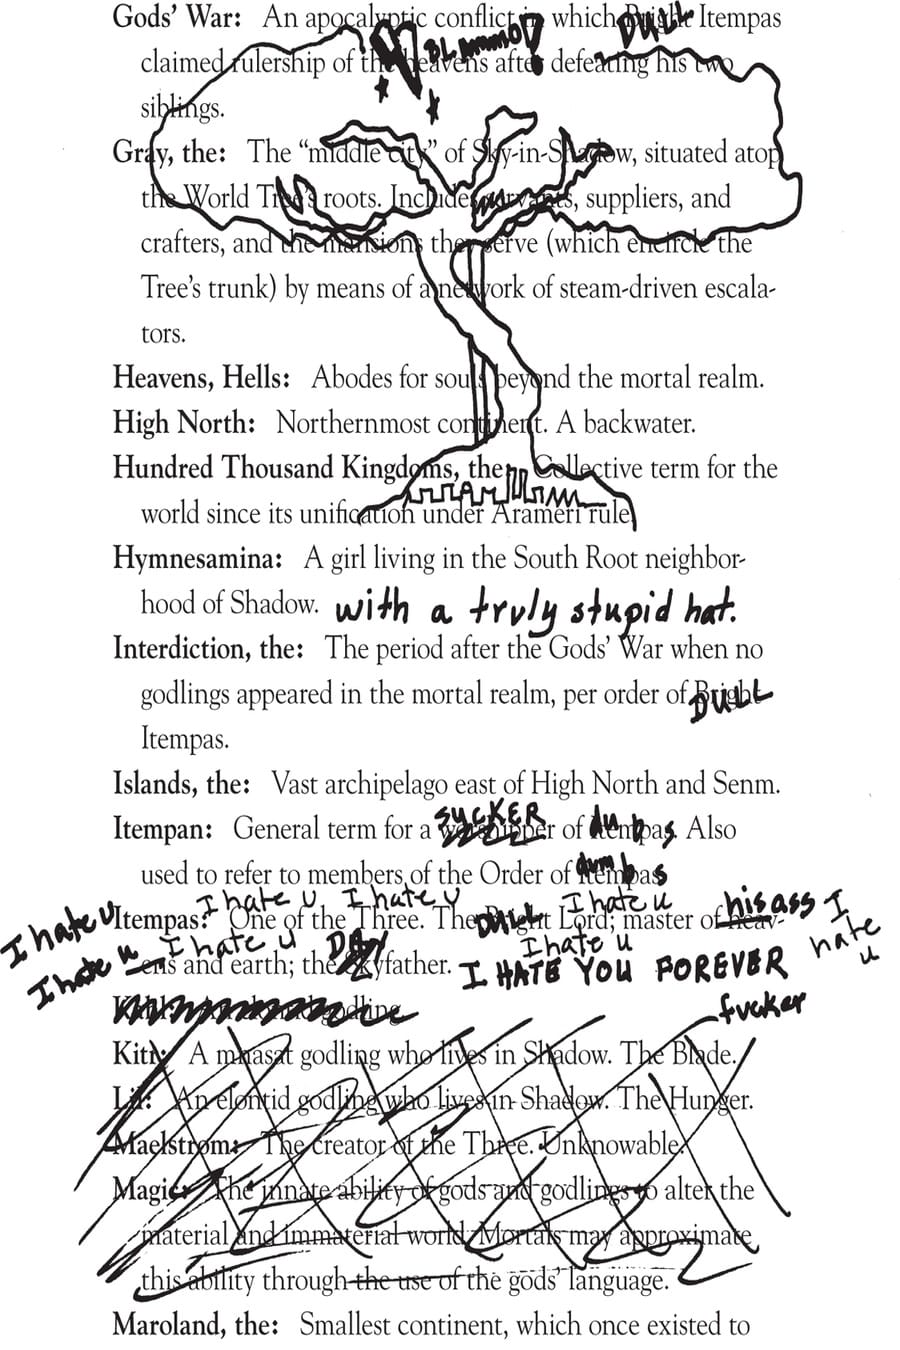 Gods’ War: An apocalyptic conflict in which Bright DULL Itempas
BLAMMO
claimed rulership of the heavens after defeating his two
siblings.
Gray, the: The “middle city” of Sky-in-Shadow, situated atop
the World Tree’s roots. Includes servants, suppliers, and
crafters, and the mansions they serve (which encircle the
Tree’s trunk) by means of a network of steam-driven escala-
tors.
Heavens, Hells: Abodes for souls beyond the mortal realm.
High North: Northernmost continent. A backwater.
Hundred Thousand Kingdoms, the: Collective term for the
world since its unification under Arameri rule.
Hymnesamina: A girl living in the South Root neighbor-
hood of Shadow. with a truly stupid hat.
Interdiction, the: The period after the Gods’ War when no
godlings appeared in the mortal realm, per order of Bright DULL
Itempas.
Islands, the: Vast archipelago east of High North and Senm.
SUCKER
Itempan: General term for a worshipper of dumpas. Also
used to refer to members of the Order of dumbpas
I hate u I hate u I hate u his ass I
I hate u Itempas: One of the Three. The DULL Bright Lord; master of heav-
I hate u I hate u I hate u hate u
ens and earth; the Skyfather. I HATE YOU FOREVER
fucker
godling
Kitr: A mnasat godling who lives in Shadow. The Blade.
Lil: An elontid godling who lives in Shadow. The Hunger.
Maelstrom: The creator of the Three. Unknowable.
Magic: The innate ability of gods and godlings to alter the
material and immaterial world. Mortals may approximate
this ability through the use of the gods’ language.
Maroland, the: Smallest continent, which once existed to